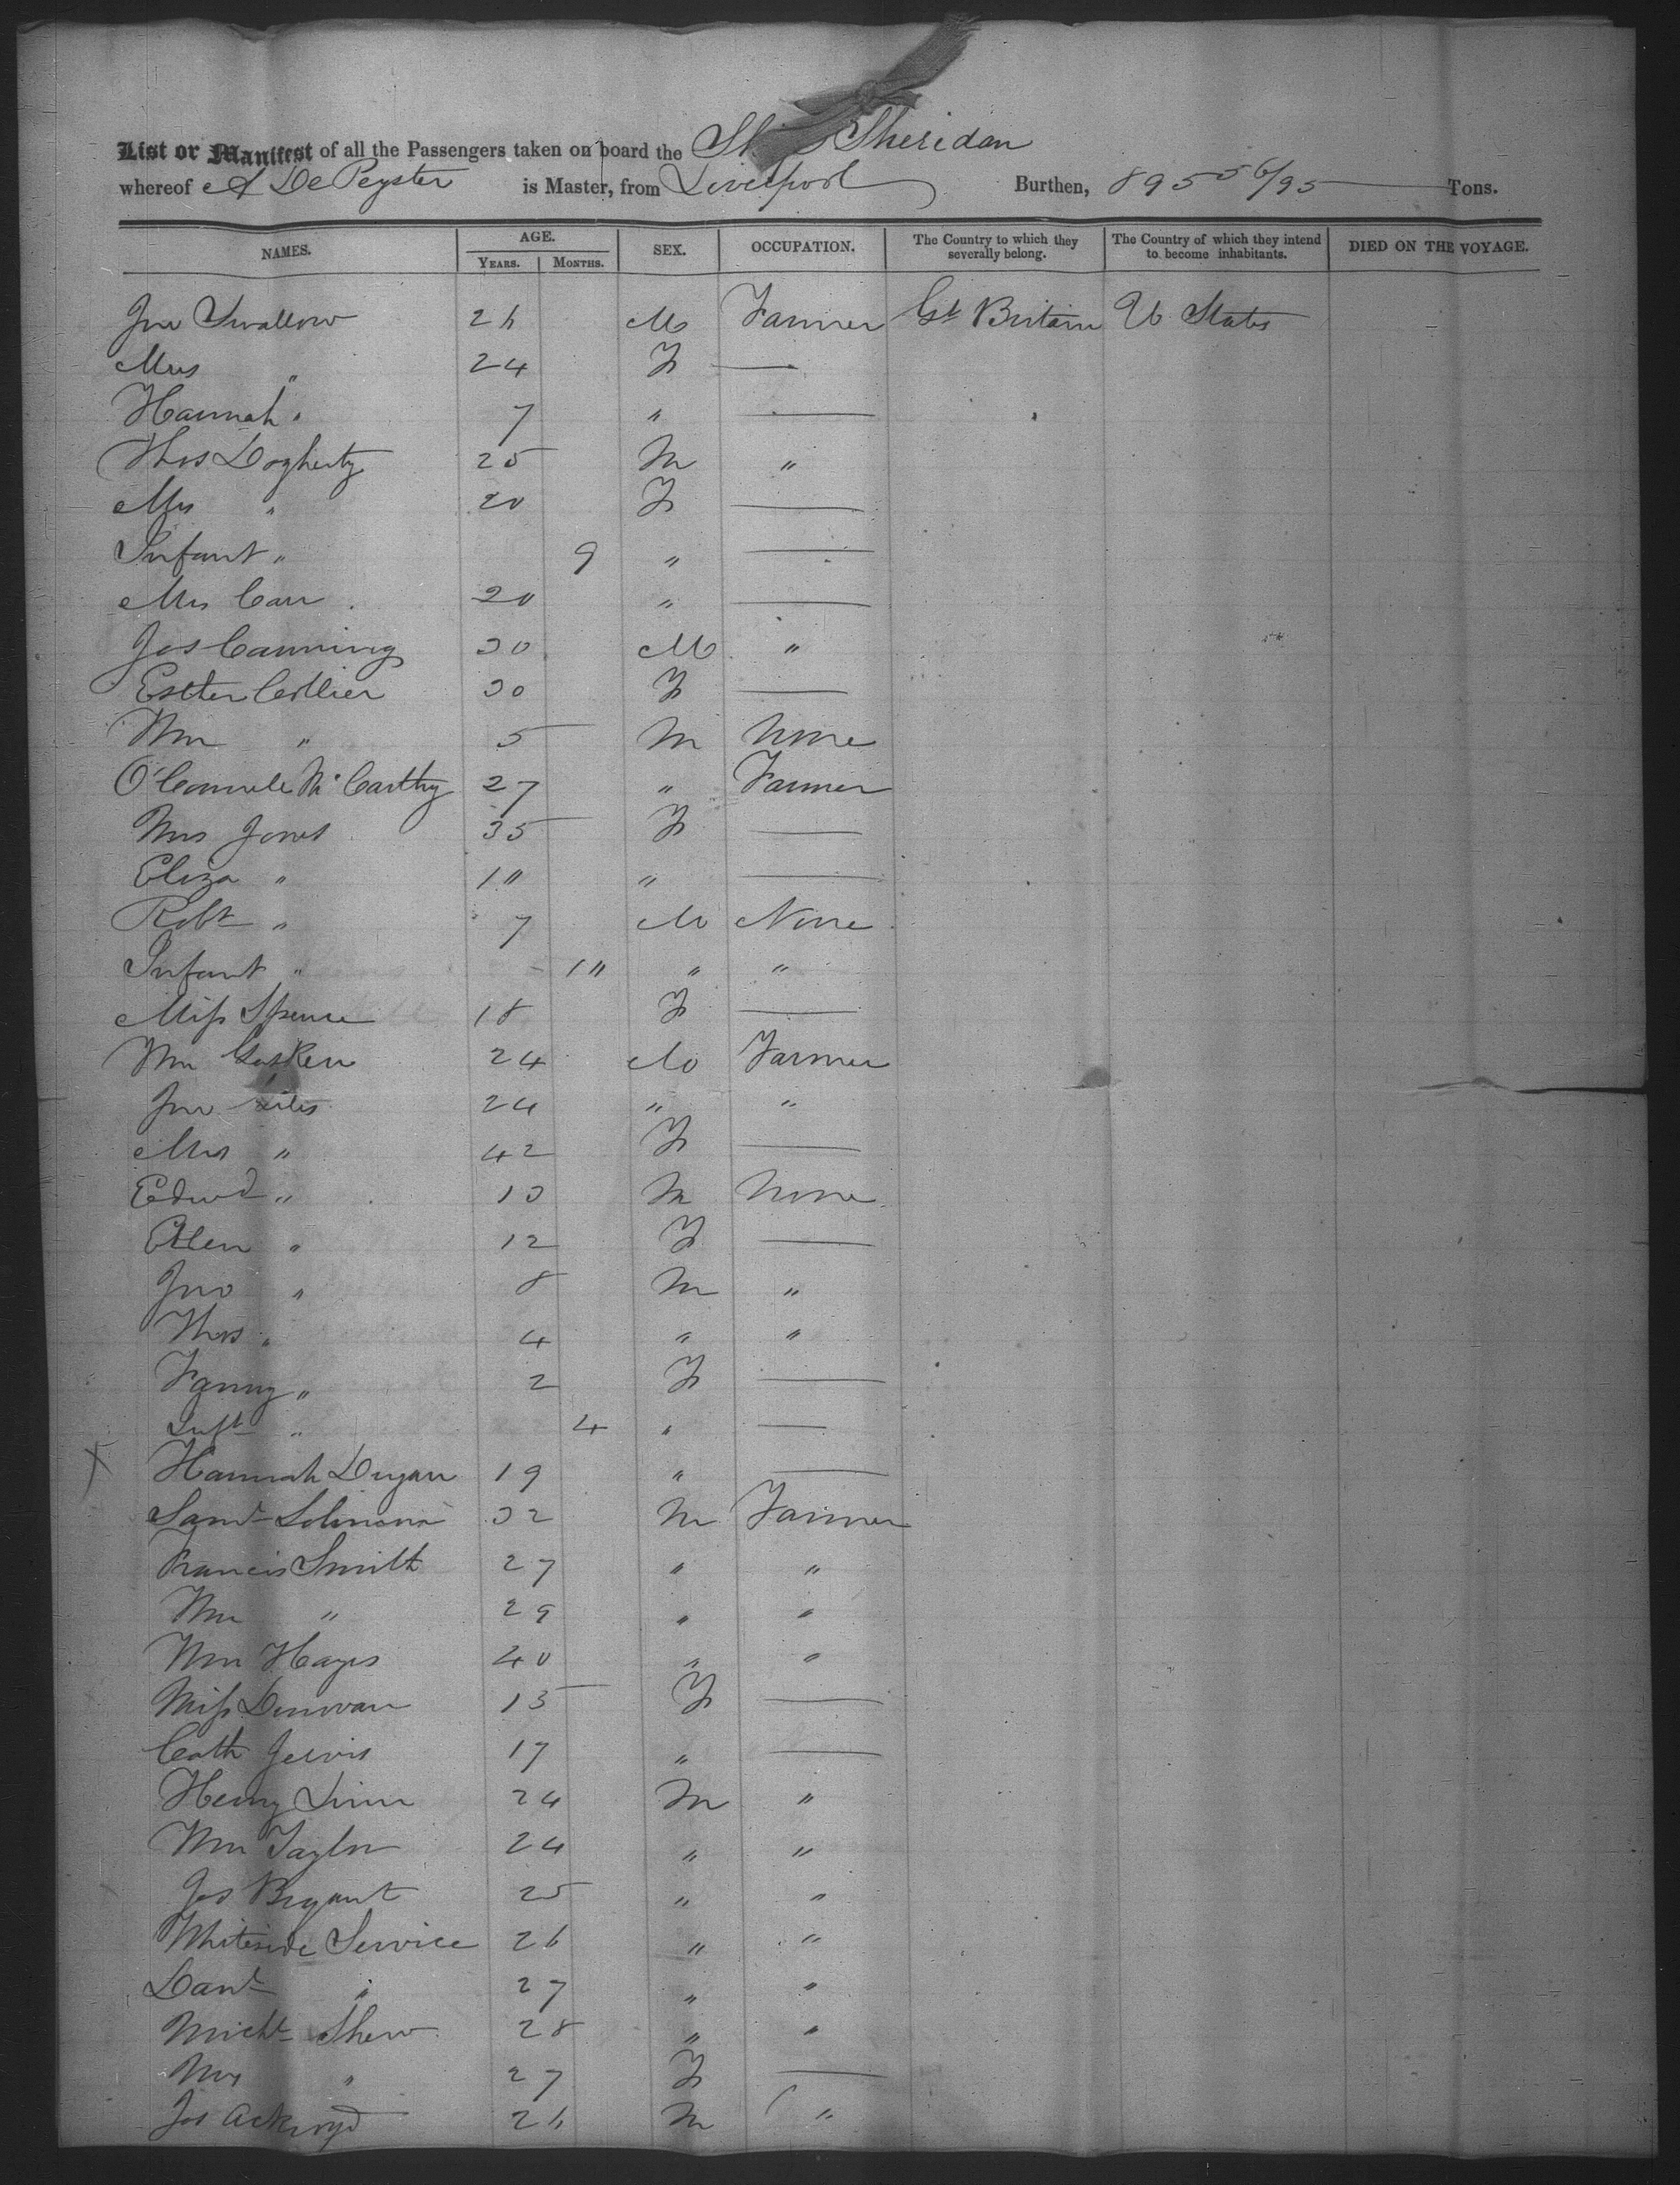 List or Manifest of all the Passengers taken on board the Ship Sheridan
whereof A De Peyster is Master, from Liverpool Burthen, 895 56/95 Tons.
NAMES. AGE. YEARS. MONTHS. SEX. OCCUPATION. The Country to which they severally belong. The Country of which they intend to become inhabitants. DIED ON THE VOYAGE.
Jno Swallow 26 M Farmer Gt Britain U States
Mrs " 24 F —
Hannah " 7 " —
Thos Dogherty 25 M "
Mrs " 20 F —
Infant " 9 " —
Mrs Carr 20 " —
Jas Canning 30 M "
Esther Collier 30 F —
Wm " 5 M None
McCarthy 27 " Farmer
Mrs Jones 35 F —
Eliza " 10 " —
Robt " 7 M None
Infant " 10 " "
Miss Spence 18 F —
Wm Gasken 24 M Farmer
Jno 24 " "
Mrs " 42 F —
Edwd " 13 M None
Ellen " 12 F —
Jno " 8 M "
Thos " 4 " "
Fanny " 2 F —
Inft " 4 " —
X Hannah Dugan 19 " —
Saml 32 M Farmer
Francis Smith 27 " "
Wm " 29 " "
Wm Hayes 40 " "
Miss Donovan 15 F —
Cath Jervis 17 " —
Henry Linn 24 M "
Wm Taylor 24 " "
Jas Bryant 25 " "
Whiteside Service 26 " "
Danl " 27 " "
Michl Shew 28 " "
Mrs " 27 F —
Jos Ackroyd 26 M "